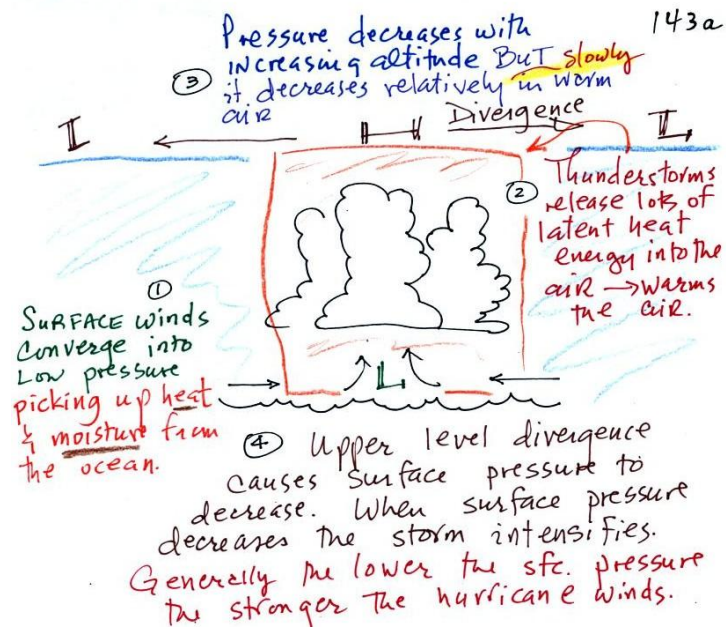 143a
Pressure decreases with
increasing altitude BUT slowly
③ it decreases relatively in warm
air
L
H
Divergence
L
②
Thunderstorms
release lots of
latent heat
energy into the
air → warms
the air.
①
SURFACE winds
converge into
Low pressure
picking up heat
& moisture from
the ocean.
L
④ Upper level divergence
causes surface pressure to
decrease. When surface pressure
decreases the storm intensifies.
Generally the lower the sfc. pressure
the stronger the hurricane winds.